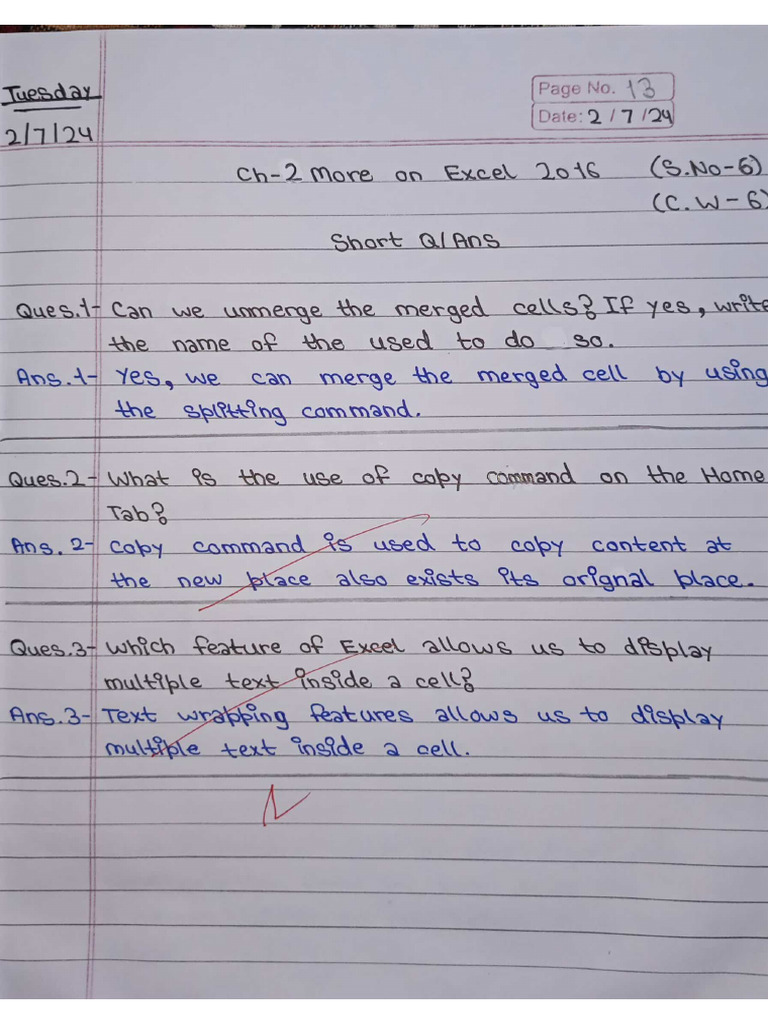 Tuesday
Page No. 13
Date: 2/7/24
2/7/24
Ch-2 More on Excel 2016 (S.No-6)
(C.W-6)
Short Q/Ans
Ques.1- Can we unmerge the merged cells? If yes, write
the name of the used to do so.
Ans.1- Yes, we can merge the merged cell by using
the splitting command.
Ques.2- What is the use of copy command on the Home
Tab?
Ans.2- Copy command is used to copy content at
the new place also exists its orignal place.
Ques.3- Which feature of Excel allows us to display
multiple text inside a cell?
Ans.3- Text wrapping features allows us to display
multiple text inside a cell.